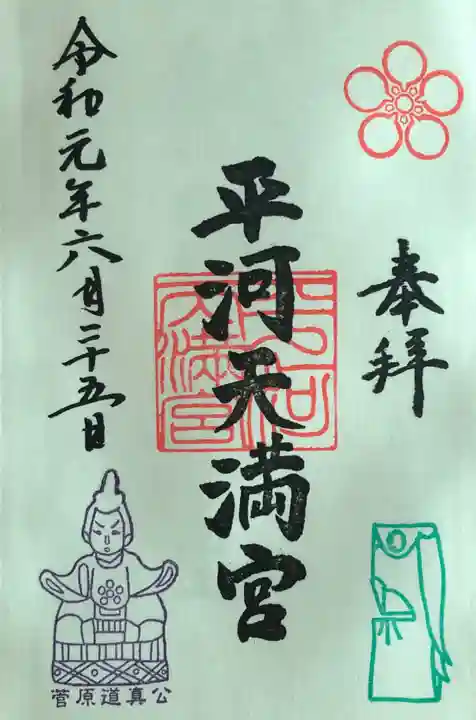 奉拝
平河天満宮
平河
天満宮
令和元年六月二十五日
菅原道真公